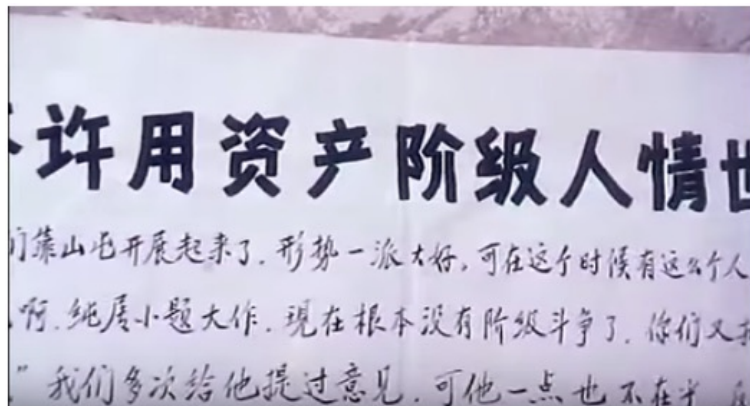 许用资产阶级人情世
们靠山屯开展起来了.形势一派大好。可在这个时候有这么个人
啊.纯属小题大作.现在根本没有阶级斗争了.你们又
”我们多次给他提过意见.可他一点也不在乎